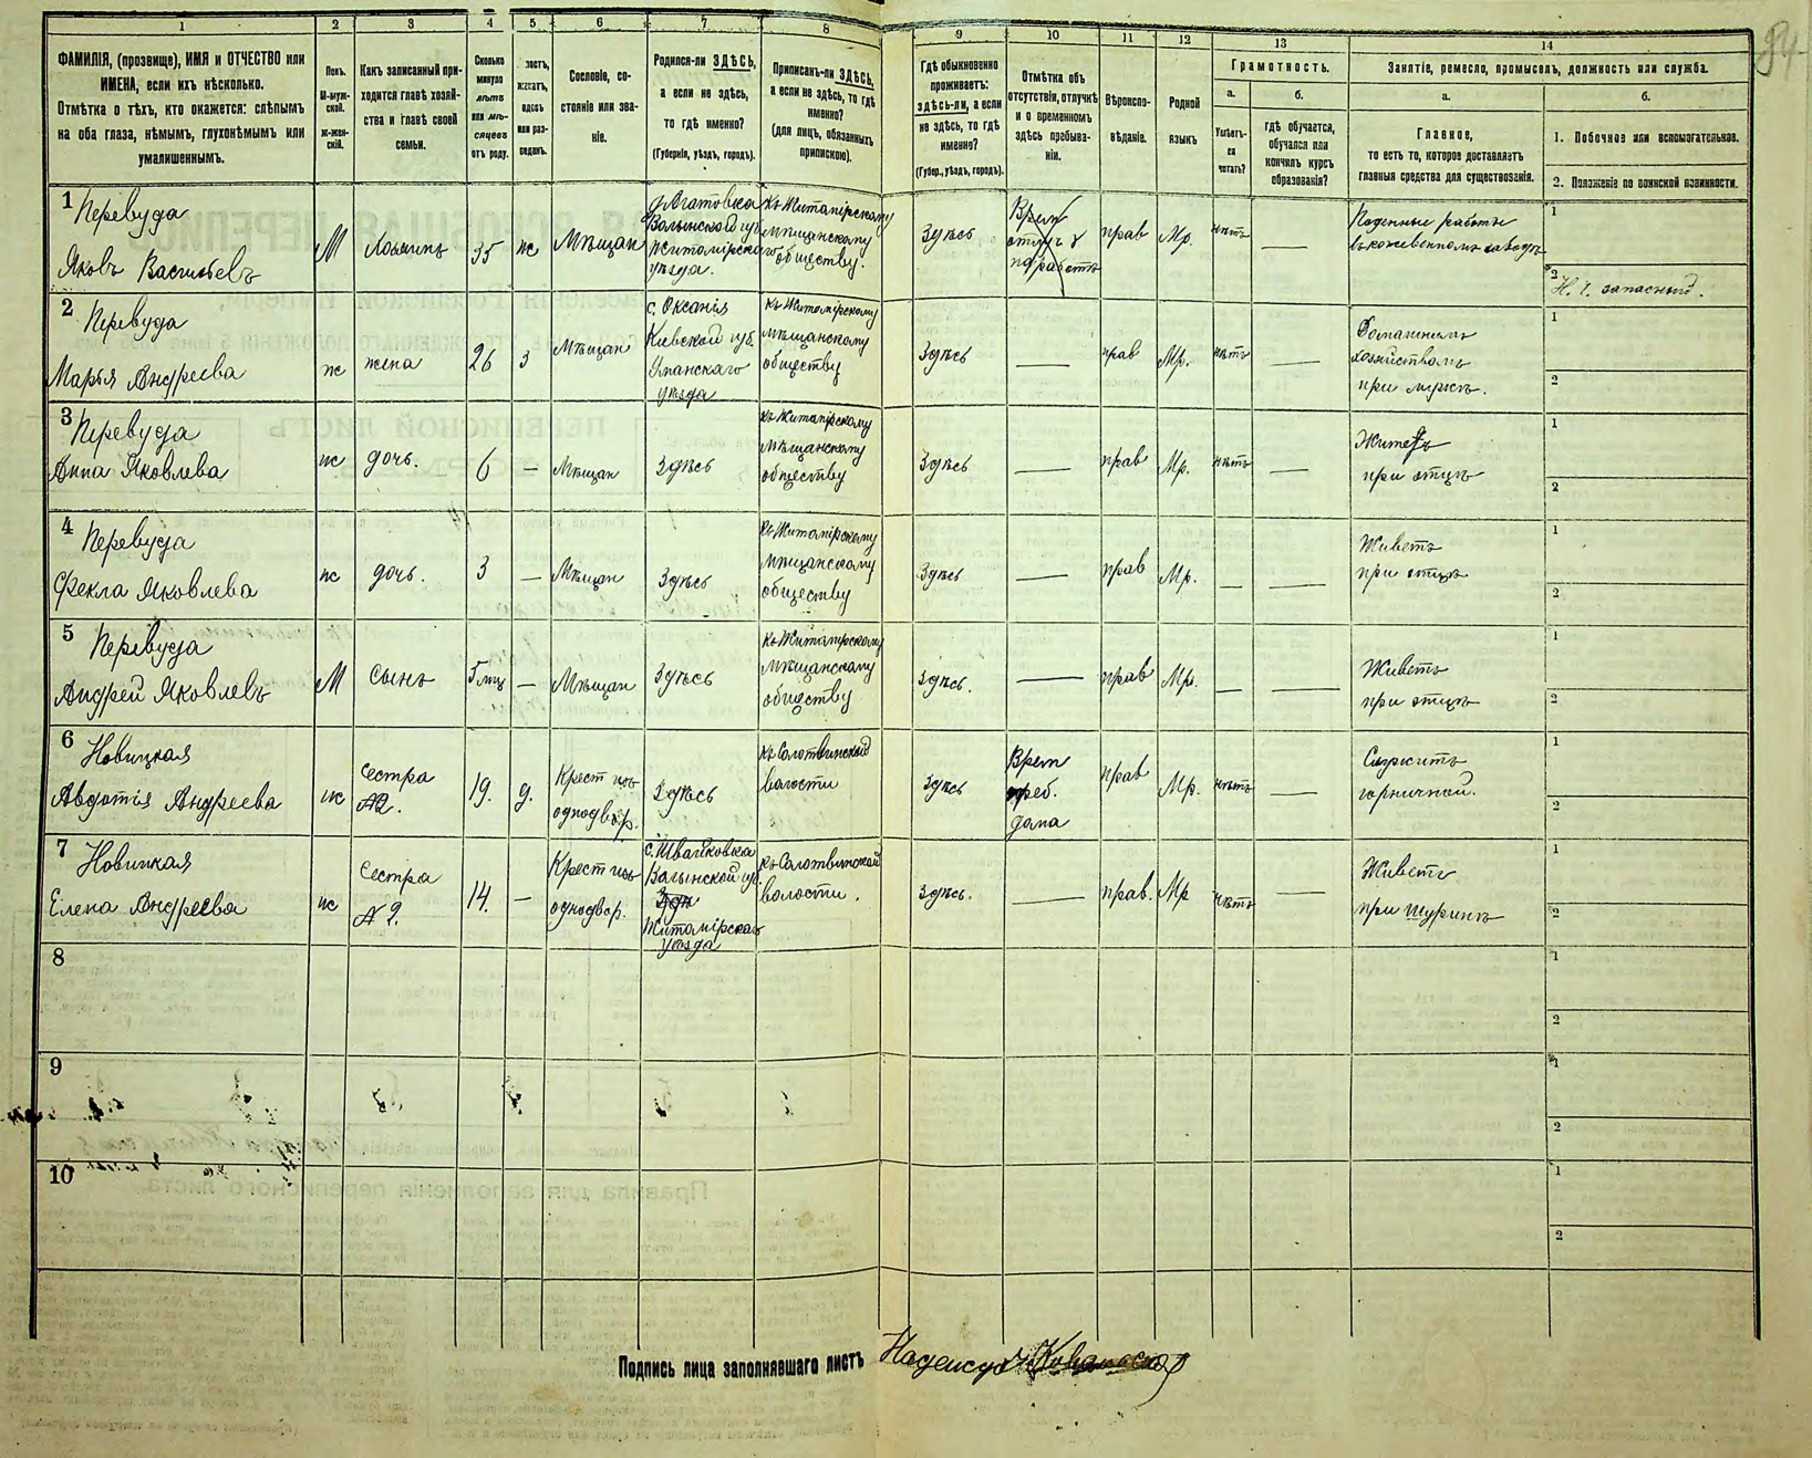 84
1 2 3 4 5 6 7 8 9 10 11 12 13 14
ФАМИЛІЯ, (прозвище), ИМЯ и ОТЧЕСТВО или
ИМЕНА, если ихъ нѣсколько.
Отмѣтка о тѣхъ, кто окажется: слѣпымъ
на оба глаза, нѣмымъ, глухонѣмымъ или
умалишеннымъ.
Полъ.
М-муж-
ской.
ж-жен-
скій.
Какъ записанный при-
ходится главѣ хозяй-
ства и главѣ своей
семьи.
Сколько
минуло
лѣтъ
или мѣ-
сяцевъ
отъ роду.
лостъ,
женатъ,
вдовъ
или раз-
веденъ.
Сословіе, со-
стояніе или зва-
ніе.
Родился-ли ЗДѢСЬ,
а если не здѣсь,
то гдѣ именно?
(Губернія, уѣздъ, городъ).
Приписанъ-ли ЗДѢСЬ,
а если не здѣсь, то гдѣ
именно?
(для лицъ, обязанныхъ
припискою).
Гдѣ обыкновенно
проживаетъ:
здѣсь-ли, а если
не здѣсь, то гдѣ
именно?
(Губер., уѣздъ, городъ).
Отмѣтка объ
отсутствіи, отлучкѣ
и о временномъ
здѣсь пребыва-
ніи.
Вѣроиспо-
вѣданіе.
Родной
языкъ
Грамотность.
а.
Умѣетъ-
ли
читать?
б.
гдѣ обучается,
обучался или
кончилъ курсъ
образованія?
Занятіе, ремесло, промыселъ, должность или служба.
а.
Главное,
то есть то, которое доставляетъ
главныя средства для существованія.
б.
1. Побочное или вспомогательное.
2. Положеніе по воинской повинности.
1 Перевуда
Яковъ Васильевъ
М
Хозяинъ
35
ж
Мѣщан
д. Агатовка
Волынской губ
Житомірскаго
уѣзда.
къ Житомірскому
мѣщанскому
обществу.
Здѣсь
Врем
отлуч
на работѣ
прав
Мр.
нѣтъ
—
Поденные работы
въ кожевенномъ заводѣ
1
2
Н. ч. запасный.
2 Перевуда
Марья Андреева
ж
жена
26
з
Мѣщан
с. Оксанія
Кіевской губ.
Уманскаго
уѣзда
къ Житомірскому
мѣщанскому
обществу
Здѣсь
—
прав
Мр.
нѣтъ
—
Домашнимъ
хозяйствомъ
при мужѣ.
1
2
3 Перевуда
Анна Яковлева
ж
дочь.
6
—
Мѣщан
Здѣсь
къ Житомірскому
мѣщанскому
обществу
Здѣсь
—
прав
Мр.
нѣтъ
—
при отцѣ
1
2
4 Перевуда
Фекла Яковлева
ж
дочь.
3
—
Мѣщан
Здѣсь
къ Житомірскому
мѣщанскому
обществу
Здѣсь
—
прав
Мр.
—
—
Живетъ
при отцѣ
1
2
5 Перевуда
Андрей Яковлевъ
М
Сынъ
5 мц
—
Мѣщан
Здѣсь
къ Житомірскому
мѣщанскому
обществу
Здѣсь.
—
прав
Мр.
—
—
Живетъ
при отцѣ
1
2
6 Новицкая
Авдотія Андреева
ж
Сестра
№2.
19.
д.
Крест изъ
однодвор.
Здѣсь
къ Солотвинской
волости
Здѣсь
Врем
преб.
дома
прав
Мр.
нѣтъ
—
Служитъ
горничной.
1
2
7 Новицкая
Елена Андреева
ж
Сестра
№ 2.
14.
—
Крест изъ
однодвор.
с. Швайковка
Волынской губ.
Здѣ
Житомірскаго
уѣзда
къ Солотвинской
волости.
Здѣсь.
—
прав.
Мр
нѣтъ
—
Живетъ
при шуринѣ
1
2
8
1
2
9
1
2
10
1
2
Подпись лица заполнявшаго листъ